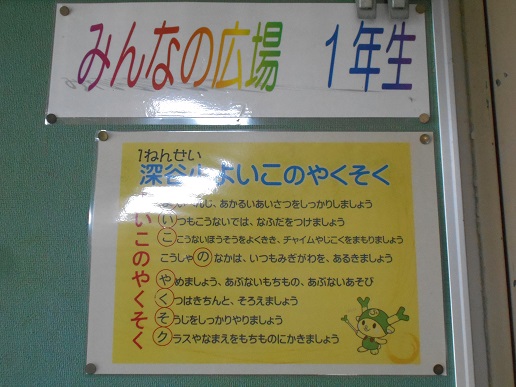 みんなの広場 1年生
1ねんせい
深谷小よいこのやくそく
よいこのやくそく
んじ、あかるいあいさつをしっかりしましょう
いつもこうないでは、なふだをつけましょう
こうないほうそうをよくきき、チャイムやじこくをまもりましょう
こうしゃのなかは、いつもみぎがわを、あるきましょう
やめましょう、あぶないもちもの、あぶないあそび
くつはきちんと、そろえましょう
そうじをしっかりやりましょう
クラスやなまえをもちものにかきましょう